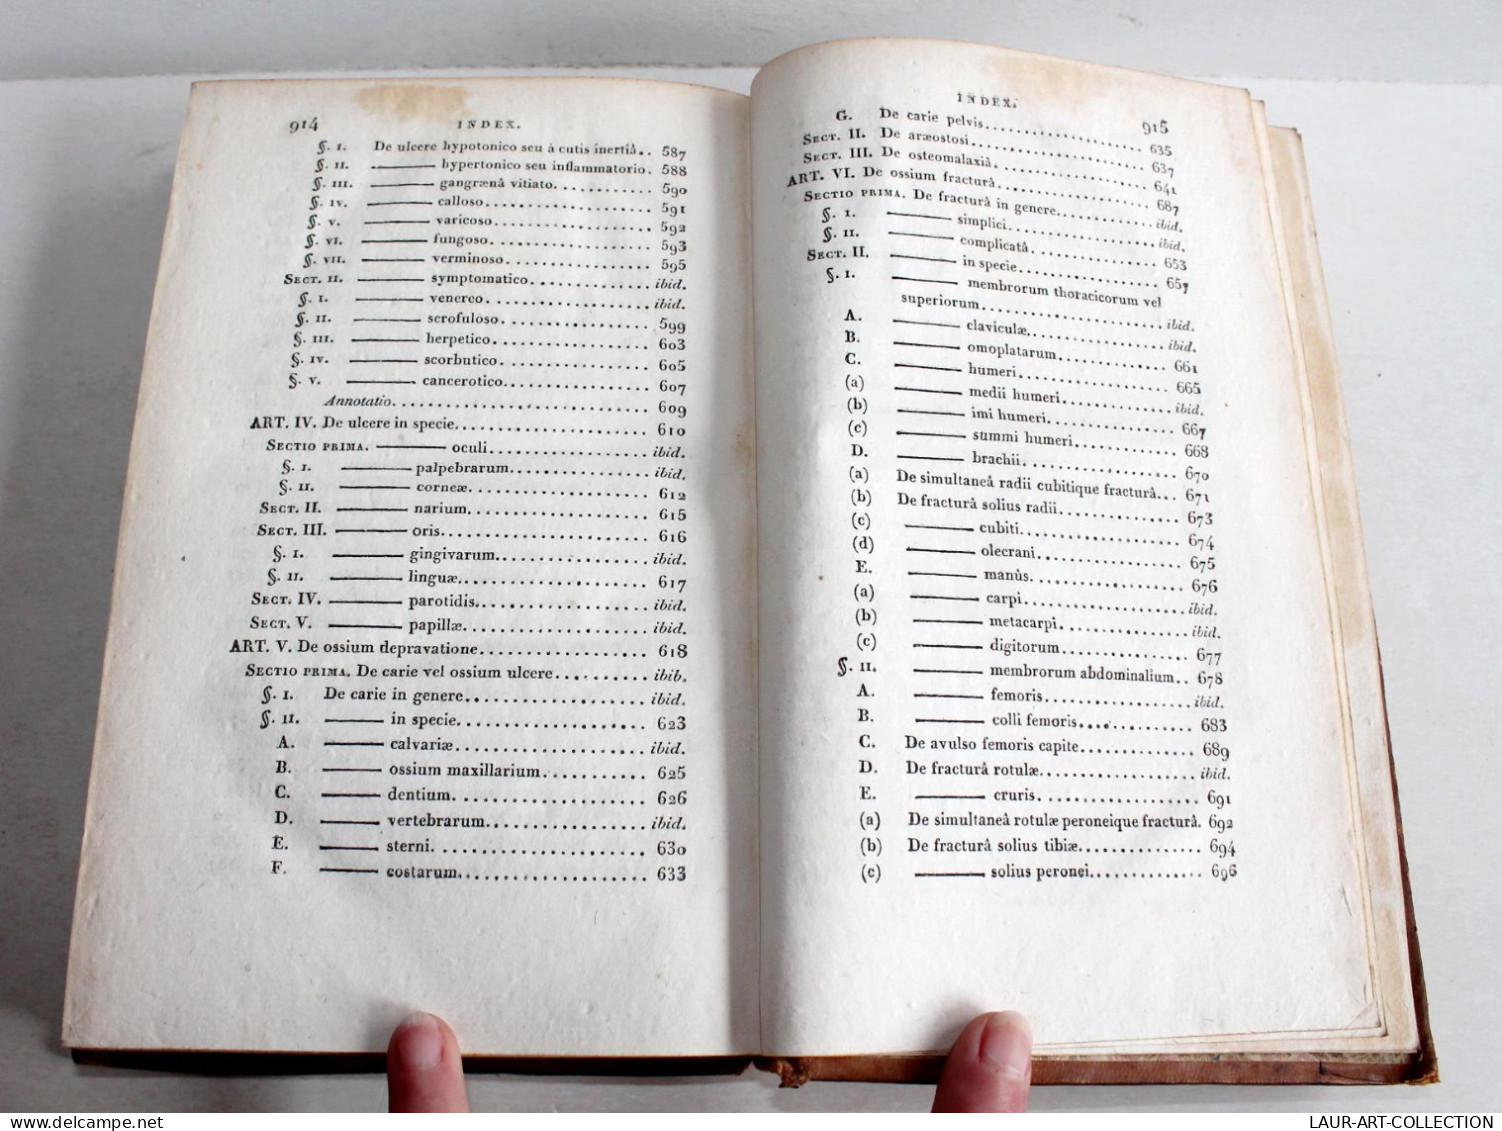 914 INDEX.
§. I. De ulcere hypotonico seu à cutis inertiâ.. 587
§. II. ——— hypertonico seu inflammatorio. 588
§. III. ——— gangrænâ vitiato............ 590
§. IV. ——— calloso.................... 591
§. V. ——— varicoso.................... 592
§. VI. ——— fungoso.................... 593
§. VII. ——— verminoso.................. 595
SECT. II. ——— symptomatico............... ibid.
§. I. ——— venereo.................... ibid.
§. II. ——— scrofuloso.................. 599
§. III. ——— herpetico.................. 603
§. IV. ——— scorbutico.................. 605
§. V. ——— cancerotico................. 607
Annotatio............................ 609
ART. IV. De ulcere in specie.................... 610
SECTIO PRIMA. ——— oculi................... ibid.
§. I. ——— palpebrarum................ ibid.
§. II. ——— corneæ..................... 612
SECT. II. ——— narium...................... 615
SECT. III. ——— oris........................ 616
§. I. ——— gingivarum................. ibid.
§. II. ——— linguæ...................... 617
SECT. IV. ——— parotidis................... ibid.
SECT. V. ——— papillæ.................... ibid.
ART. V. De ossium depravatione................. 618
SECTIO PRIMA. De carie vel ossium ulcere.......... ibib.
§. I. De carie in genere.................. ibid.
§. II. ——— in specie................... 623
A. ——— calvariæ.................... ibid.
B. ——— ossium maxillarium........... 625
C. ——— dentium.................... 626
D. ——— vertebrarum................ ibid.
E. ——— sterni...................... 630
F. ——— costarum................... 633
INDEX. 915
G. De carie pelvis.................... 635
SECT. II. De aræostosi...................... 637
SECT. III. De osteomalaxiâ................... 641
ART. VI. De ossium fracturâ................... 687
SECTIO PRIMA. De fracturâ in genere............. ibid.
§. I. ——— simplici................... ibid.
§. II. ——— complicatâ................. 653
SECT. II. ——— in specie................... 657
§. I. ——— membrorum thoracicorum vel
superiorum....................... ibid.
A. ——— claviculæ................... ibid.
B. ——— omoplatarum................ 661
C. ——— humeri..................... 665
(a) ——— medii humeri............... ibid.
(b) ——— imi humeri................. 667
(c) ——— summi humeri............... 668
D. ——— brachii..................... 670
(a) De simultaneâ radii cubitique fracturâ... 671
(b) De fracturâ solius radii............... 673
(c) ——— cubiti..................... 674
(d) ——— olecrani................... 675
E. ——— manûs...................... 676
(a) ——— carpi...................... ibid.
(b) ——— metacarpi.................. ibid.
(c) ——— digitorum.................. 677
§. II. ——— membrorum abdominalium.. 678
A. ——— femoris.................... ibid.
B. ——— colli femoris............... 683
C. De avulso femoris capite............. 689
D. De fracturâ rotulæ................... ibid.
E. ——— cruris..................... 691
(a) De simultaneâ rotulæ peroneique fracturâ. 692
(b) De fracturâ solius tibiæ............... 694
(c) ——— solius peronei.............. 696
www.delcampe.net
LAUR-ART-COLLECTION